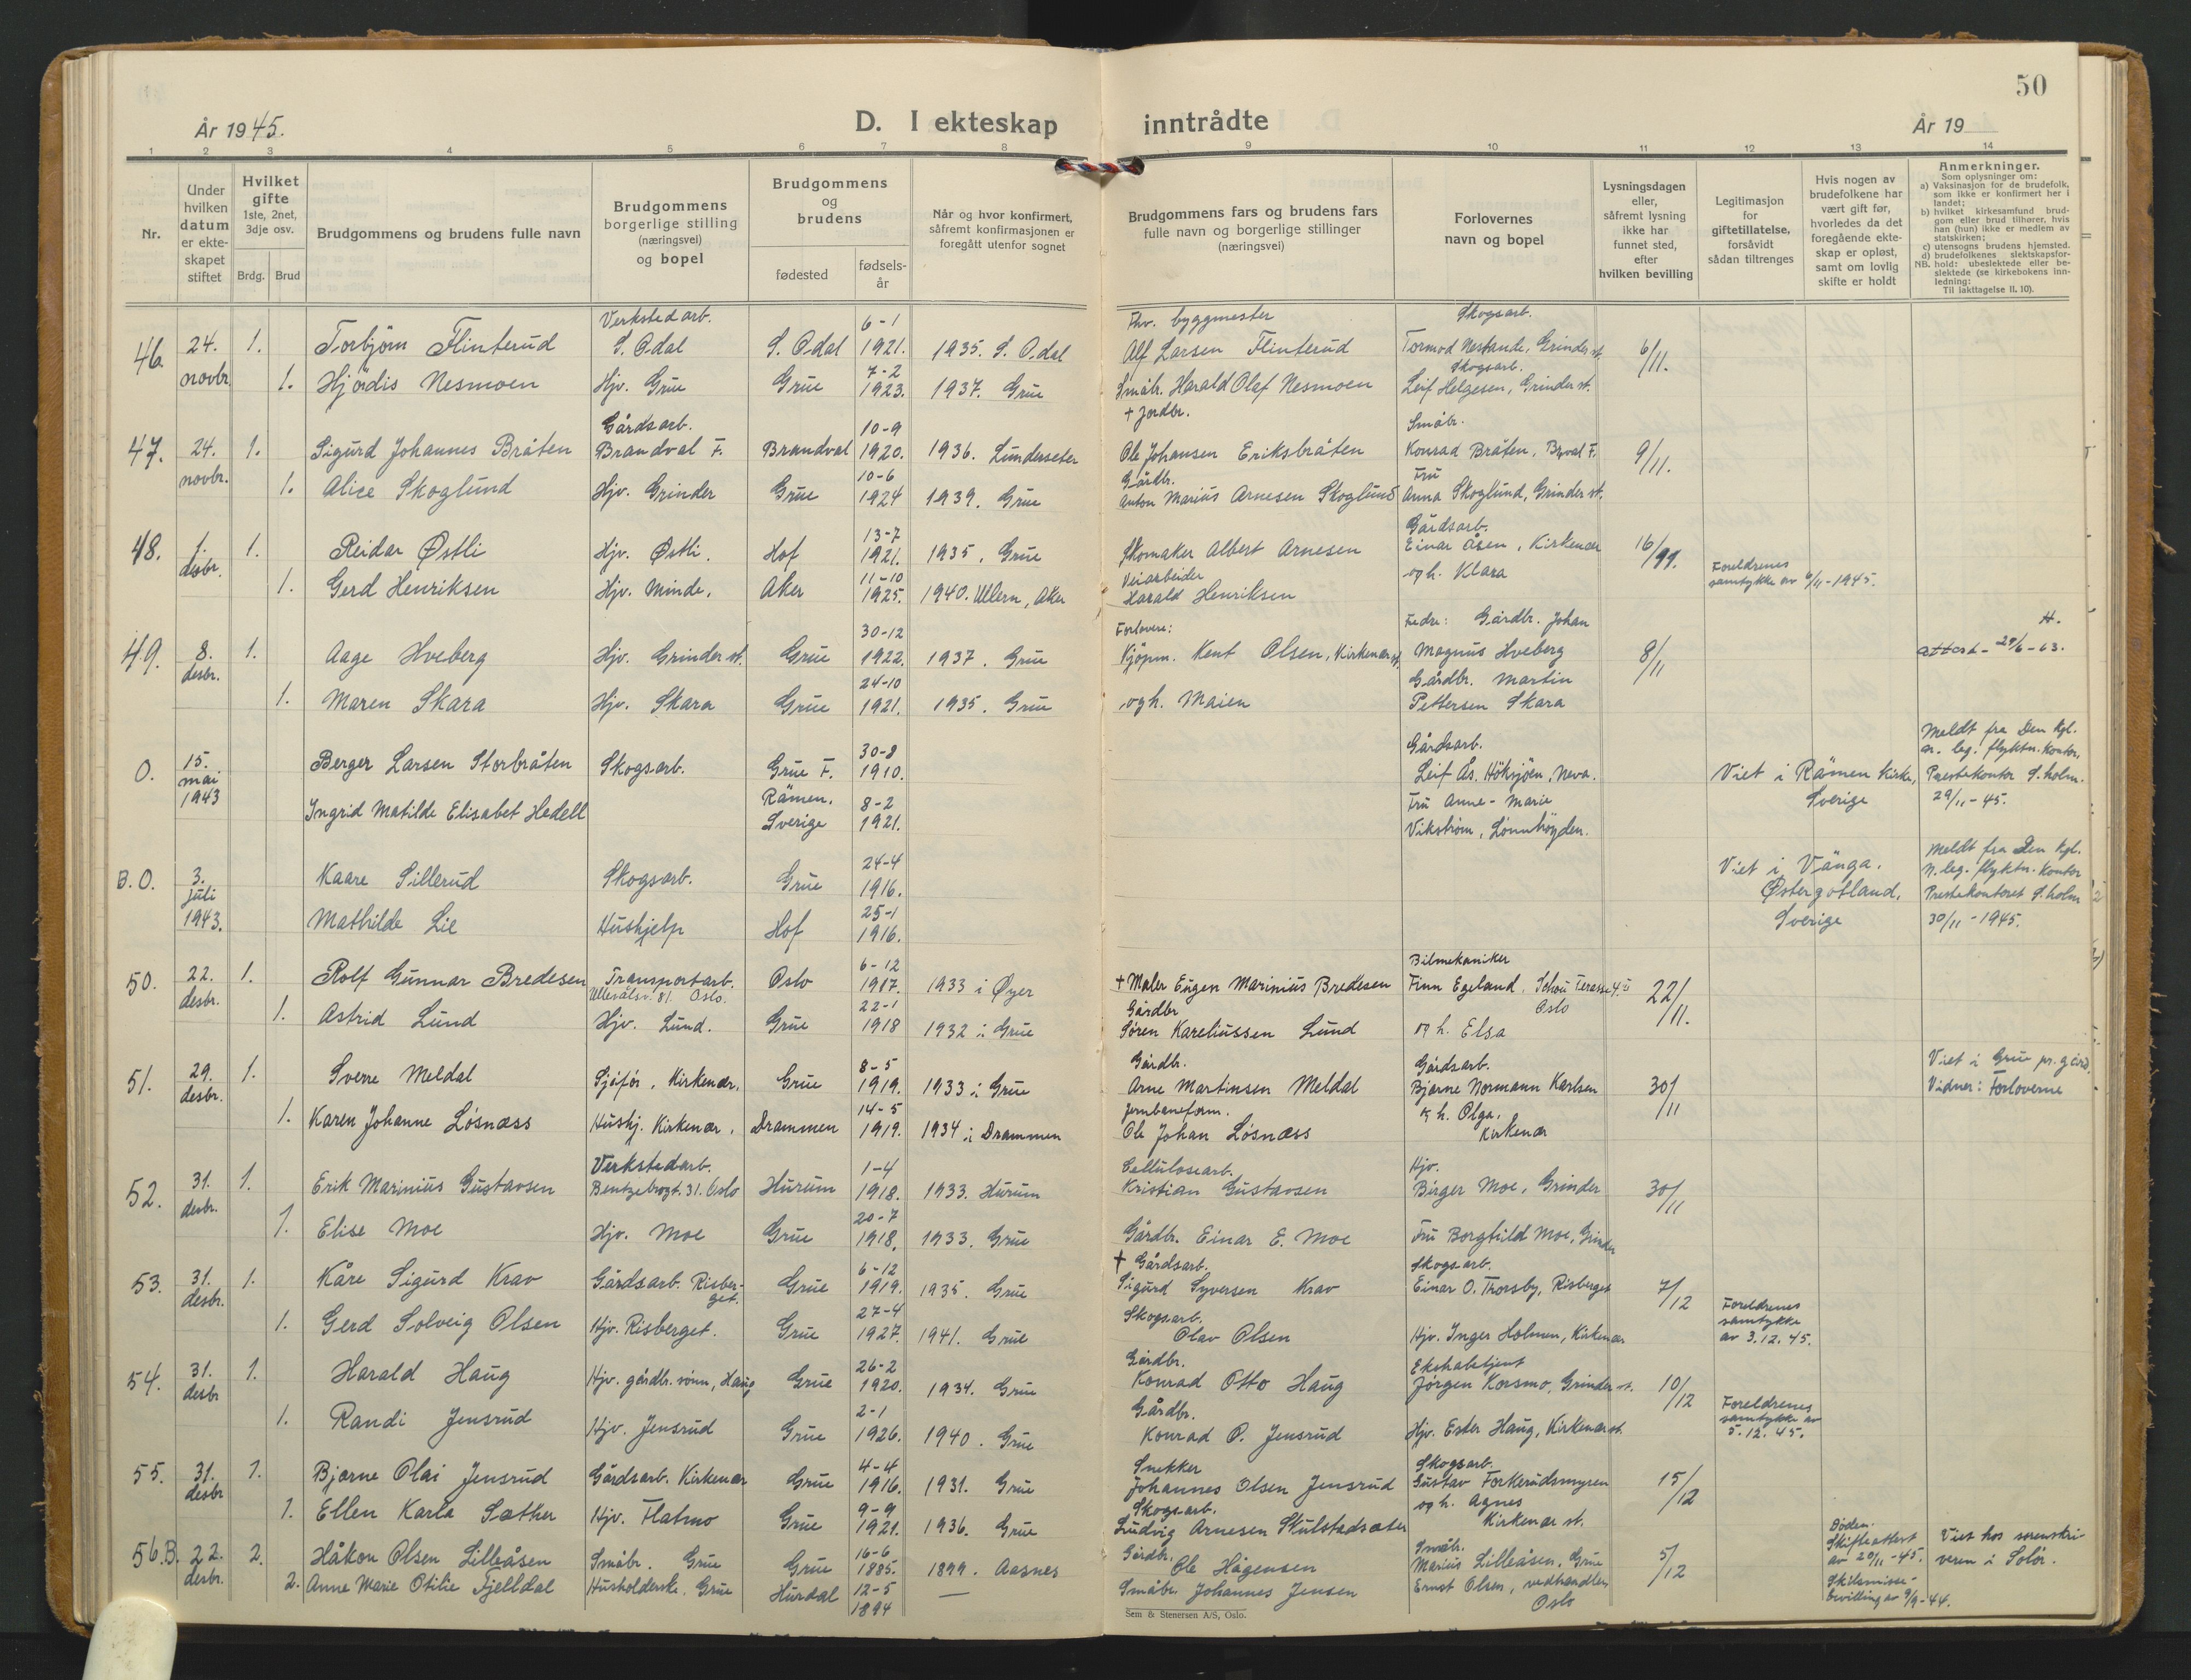 50
År 1945.
D. I ekteskap inntrådte
År 19
1 2 3 4 5 6 7 8 9 10 11 12 13 14
Nr.
Under hvilken datum er ekte-skapet stiftet
Hvilket gifte 1ste, 2net, 3dje osv.
Brdg. Brud
Brudgommens og brudens fulle navn
Brudgommens borgerlige stilling (næringsvei) og bopel
Brudgommens og brudens
fødested
fødsels-år
Når og hvor konfirmert, såfremt konfirmasjonen er foregått utenfor sognet
Brudgommens fars og brudens fars fulle navn og borgerlige stillinger (næringsvei)
Forlovernes navn og bopel
Lysningsdagen eller, såfremt lysning ikke har funnet sted, efter hvilken bevilling
Legitimasjon for giftetillatelse, forsåvidt sådan tiltrenges
Hvis nogen av brudefolkene har vært gift før, hvorledes da det foregående ekte-skap er opløst, samt om lovlig skifte er holdt
Anmerkninger.
Som oplysninger om:
a) Vaksinasjon for de brudefolk, som ikke er konfirmert her i landet;
b) hvilket kirkesamfund brud-gom eller brud tilhører, hvis han (hun) ikke er medlem av statskirken;
c) utensogns brudens hjemsted.
d) brudefolkenes slektskapsfor-hold: ubeslektede eller be-slektede (se kirkebokens inn-ledning:
NB.
Til iakttagelse II. 10).
Verkstedarb. 6-1 Fhv. byggmester Skogsarb.
46 24. 1. Torbjörn Flinterud S. Odal S. Odal 1921. 1935. S. Odal Alf Larsen Flinterud Tormod Nestande, Grinder st. 6/11.
novbr 1. Hjördis Nesmoen Hjv. Grue Grue 7-2 1923. 1937. Grue Småbr. Harald Olaf Nesmoen Skogsarb. Leif Helgesen, Grinder st.
Gårdsarb. 10-9 + Jordbr. Småbr.
47. 24. 1. Sigurd Johannes Bråten Brandval F. Brandval 1920. 1936. Lunderseter Ole Johansen Eriksbråten Konrad Bråten, Brval F. 9/11.
novbr. 1. Alice Skoglund Hjv. Grinder Grue 10-6 1924 1939. Grue Gårdbr. Anton Marius Arnesen Skoglund Fru Anna Skoglund, Grinder st.
48. 1. 1. Reidar Østli Hjv. Østli. Hof 13-7 1921. 1935. Grue Skomaker Albert Arnesen Gårdsarb. Einar Åsen, Kirkenær 16/11.
desbr. 1. Gerd Henriksen Hjv. Minde. Aker 11-10 1925. 1940. Ullern, Aker Veiarbeider Harald Henriksen og h. Klara Foreldrenes samtykke av 6/11-1945.
49. 8. 1. Aage Hveberg Hjv. Grinder st. Grue 30-12 1922. 1937. Grue Forlovere: Kjöpm. Kent Olsen, Kirkenær st. Fedre: Gårdbr. Johan Magnus Hveberg 8/11 H. attest - 29/6-63.
desbr. 1. Maren Skara Hjv. Skara Grue 24-10 1921. 1935. Grue og h. Maien Gårdbr. Martin Pettersen Skara
0. 15. mai 1943 Berger Larsen Storbråten Skogsarb. Grue F. 30-8 1910. Gårdsarb. Leif Ås. Höksjöen, Neva. Viet i Rämen kirke, Sverige Meldt fra Den kgl. n. leg. flyktn. kontor, Prestekontor S.holm. 29/11-45.
Ingrid Matilde Elisabet Hedell Rämen, Sverige 8-2 1921. Fru Anne-Marie Vikström, Lönnhöyden.
B.O. 3. juli 1943. Kaare Sillerud Skogsarb. Grue 24-4 1916. Viet i Vänga. Östergotland, Sverige Meldt fra Den kgl. N. leg. flyktn. kontor Prestekontoret S.holm 30/11-1945.
Mathilde Lie Hushjelp Hof 25-1 1916.
50. 22. 1. Rolf Gunnar Bredesen Transportarb. Ullevålsv. 81. Oslo. Oslo 6-12 1917. 1933 i Øyer + Maler Eugen Marinius Bredesen Bilmekaniker Finn Egeland, Schous Terasse Oslo 22/11.
desbr. 1. Astrid Lund Hjv. Lund. Grue 22-1 1918 1932 i Grue Gårdbr Søren Kareliussen Lund og h. Elsa
51. 29. 1. Sverre Meldal Sjåför, Kirkenær. Grue 8-5 1919. 1933 i Grue Gårdbr. Arne Martinsen Meldal Gårdsarb. Bjarne Normann Karlsen 30/11 Viet i Grue pr.gård. Vidner: Forloverne
desbr. 1. Karen Johanne Løsnæss Hushj. Kirkenær. Drammen 14-5 1919. 1934 i Drammen Jernbaneform. Ole Johan Løsnæss og h. Olga. Kirkenær
52. 31. 1. Erik Marinius Gustavsen Verkstedarb. Bentzebrogt. 31. Oslo Hurum 1-4 1918. 1933. Hurum Cellulosearb. Kristian Gustavsen Hjv. Birger Moe, Grinder 30/11
desbr. 1. Elise Moe Hjv. Moe Grue 20-7 1918. 1933. Grue Gårdbr. Einar E. Moe Fru Borghild Moe, Grinder
53. 31. 1. Kåre Sigurd Krav Gårdsarb. Risberget. Grue 6-12 1919. 1935. Grue + Gårdsarb. Sigurd Syversen Krav Skogsarb. Einar O. Thorsby, Risberget 7/12
desbr. 1. Gerd Solveig Olsen Hjv. Risberget. Grue 27-4 1927. 1941. Grue Skogsarb. Olav Olsen Hjv. Inger Holmen, Kirkenær Foreldrenes samtykke av 3.12.45.
54. 31. 1. Harald Haug Hjv. gårdbr. sönn, Haug Grue 26-2 1920. 1934. Grue Gårdbr. Konrad Otto Haug Jörgen Korsmo, Grinder st. 10/12
desbr 1. Randi Jensrud Hjv. Jensrud Grue 2-1 1926. 1940. Grue Gårdbr. Konrad O. Jensrud Hjv. Ester Haug, Kirkenær st. Foreldrenes samtykke av 5.12.45.
55. 31. 1. Bjarne Olai Jensrud Gårdsarb. Kirkenær Grue 4-4 1916. 1931. Grue Snekker Johannes Olsen Jensrud Skogsarb. Gustav Forkerudsmyren 15/12
desbr 1. Ellen Karla Sæther Hjv. Flatmo Grue 9-9 1921. 1936. Grue Skogsarb. Ludvig Arnesen Skulstadsæter og h. Agnes Kirkenær st.
56.B. 22. 2. Håkon Olsen Lilleåsen Småbr. Grue Grue 16-6 1885. 1899. Aasnes Gårdbr. Ole Hågensen Småbr. Marius Lilleåsen, Grue 5/12 Döden. Skifteattest av 20/11-45. Viet hos sorenskri-veren i Solör.
desbr. 2. Anne Marie Otilie Fjelldal Husholderske. Grue Hurdal 12-5 1894 — Småbr. Johannes Jensen Ernst Olsen, vedhandler Oslo Skilsmisse-bevilling av 9/9-44.
Sem & Stenersen A/S, Oslo.